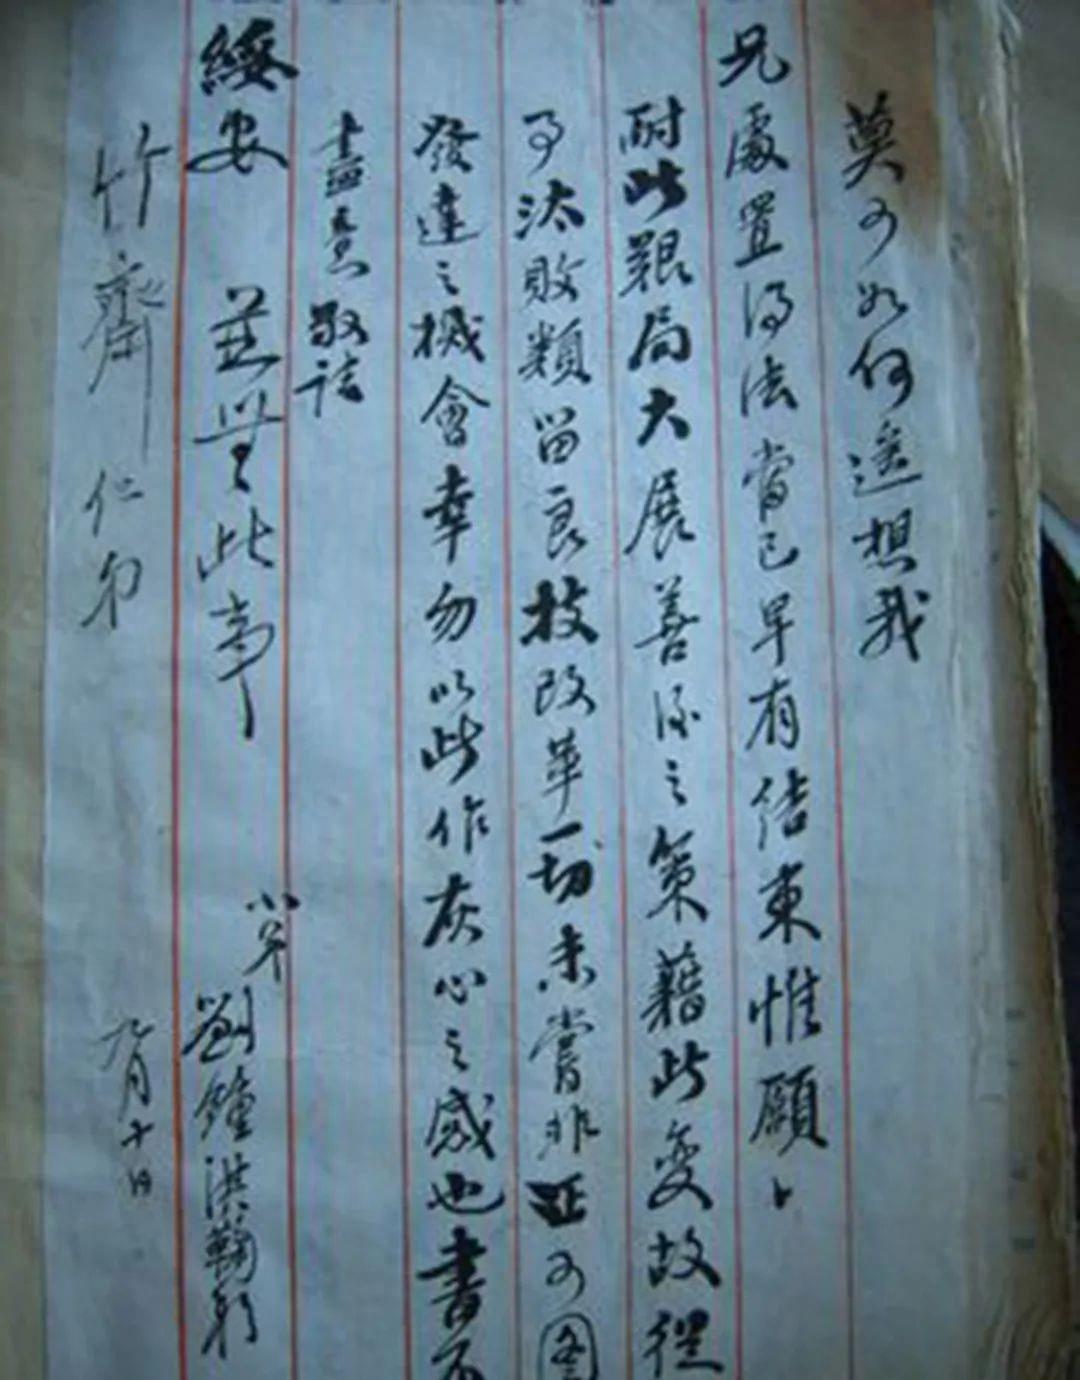 莫可如何遥想我
兄處置得法當已早有結束惟願
耐此艱局大展善後之策藉此变故從
事汰敗類留良技改革一切未嘗非正可圖
發達之機會幸勿以此作灰心之感也書不
盡意敬請
綏安
此
小弟劉鐘洪鞠躬
竹齋仁弟
九月十日